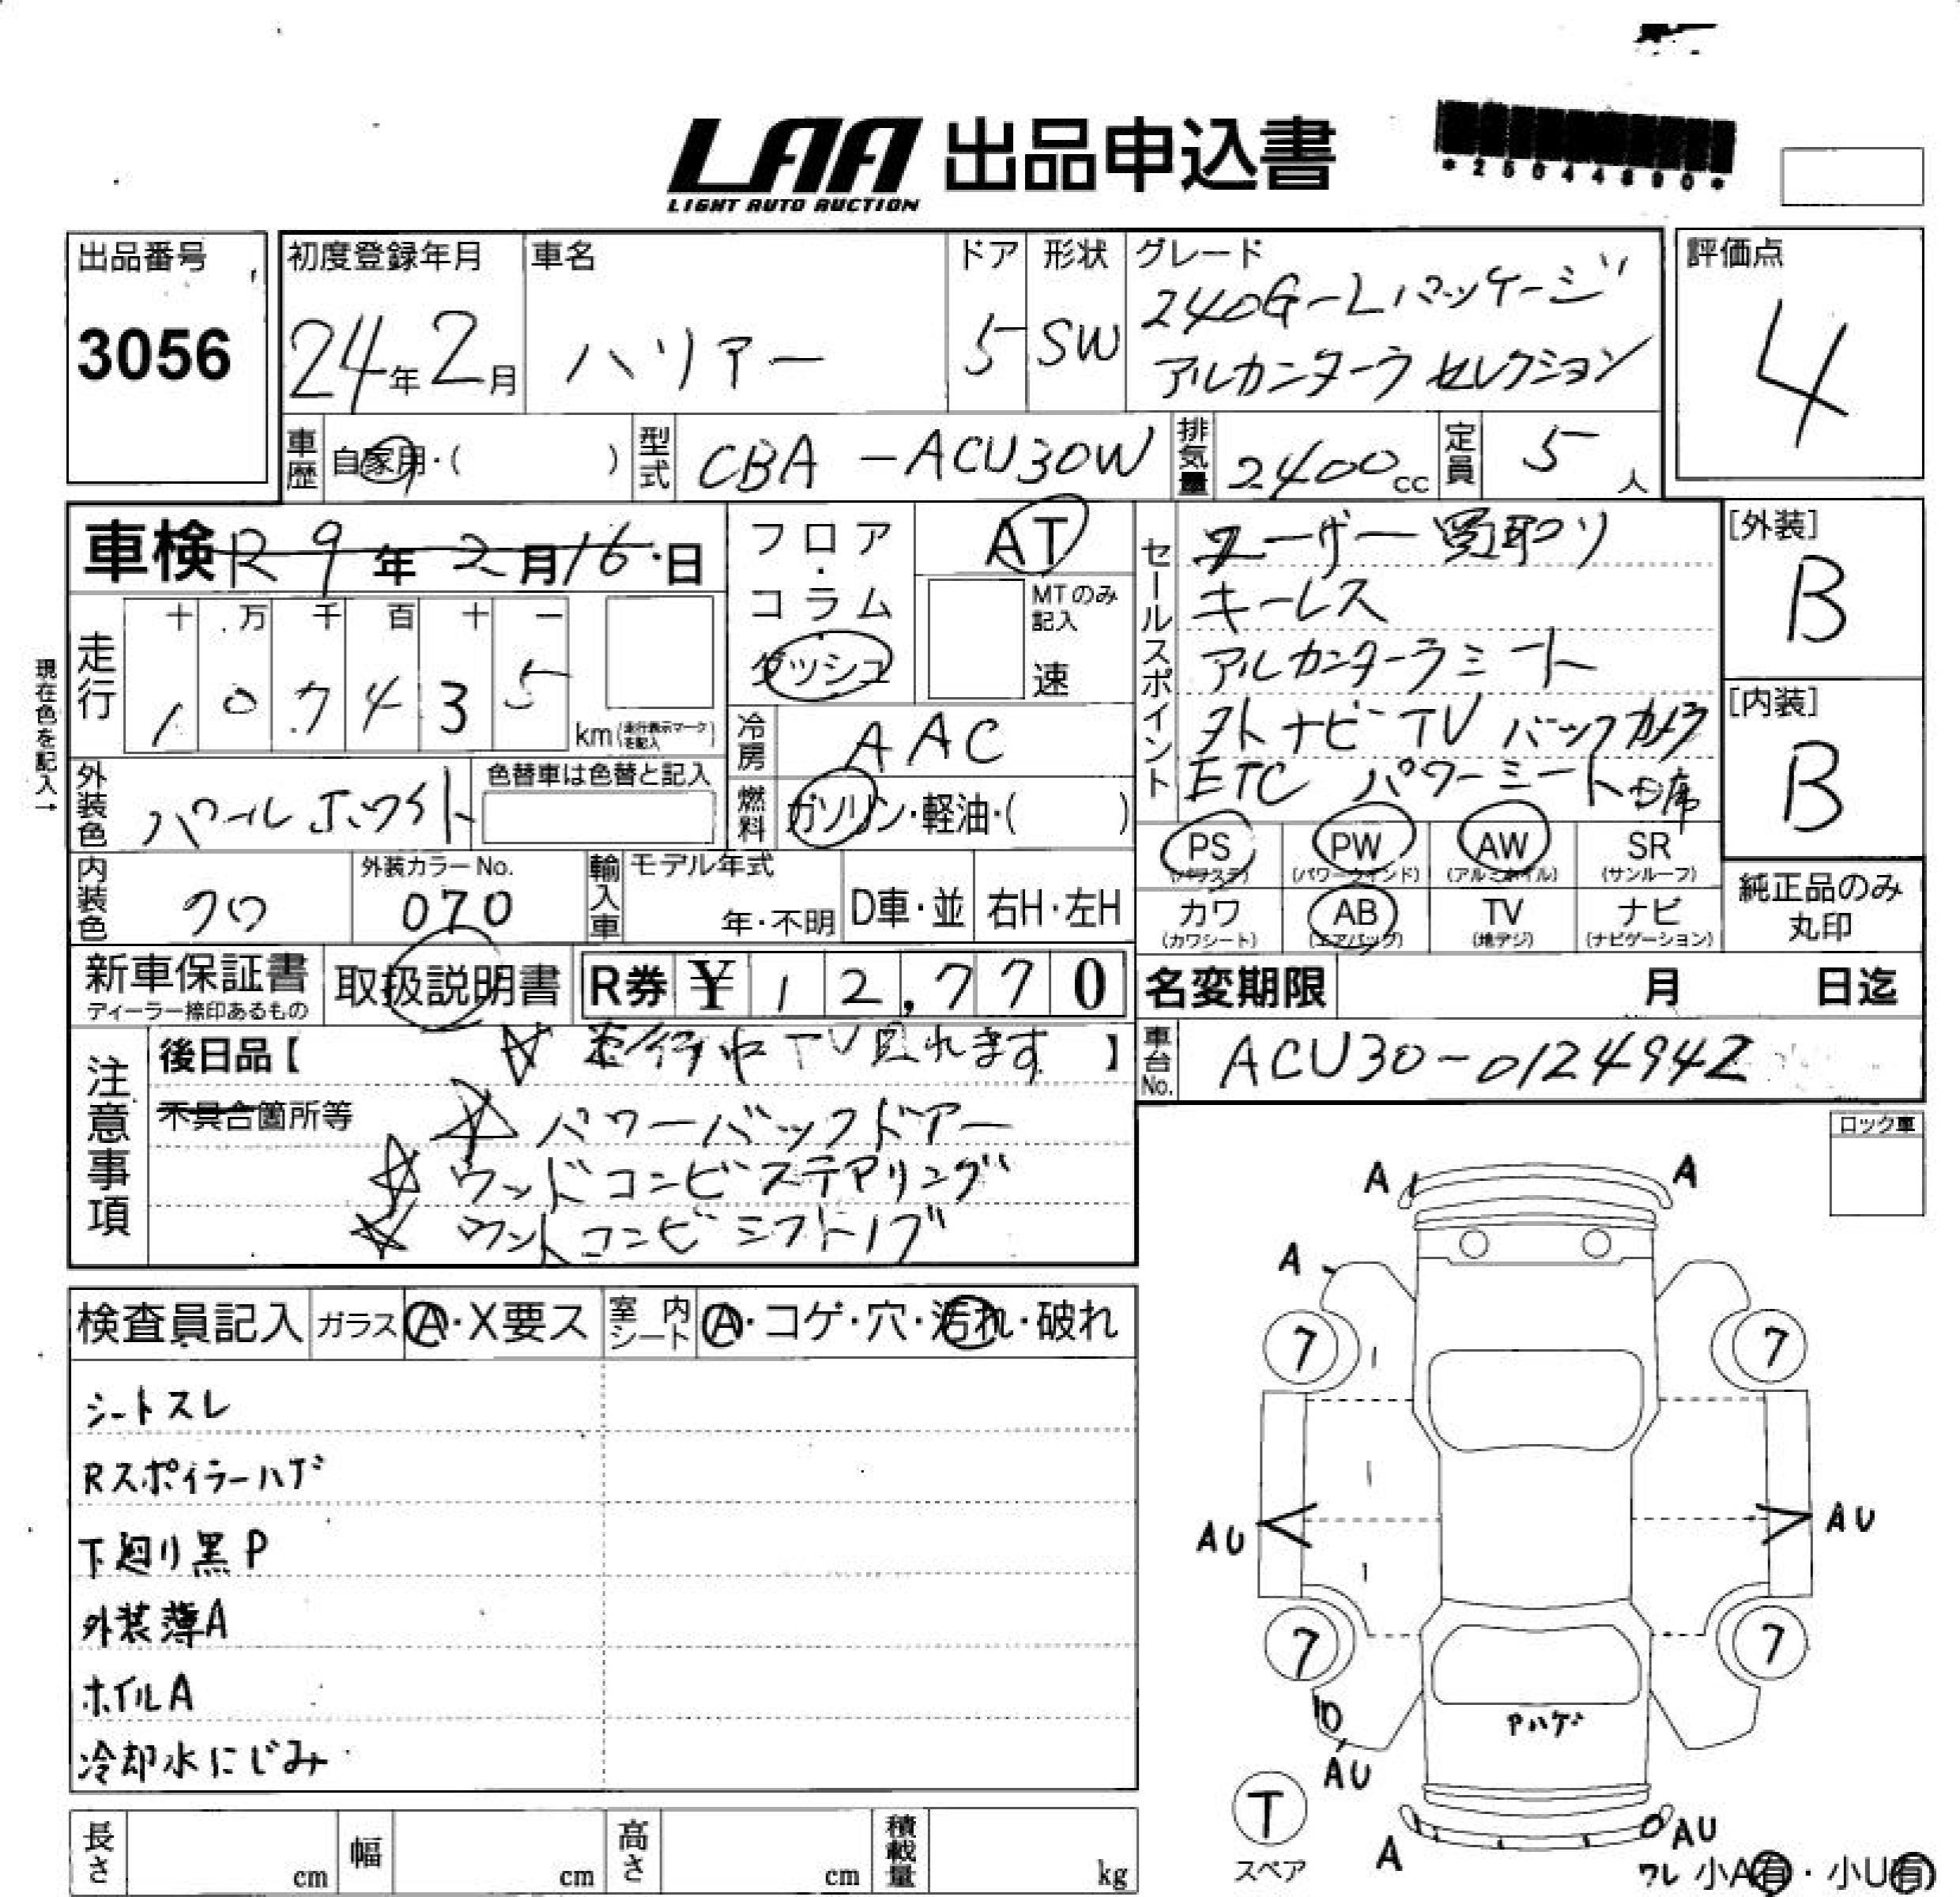 LAA 出品申込書
LIGHT AUTO AUCTION
*25044890*
出品番号
3056
初度登録年月
24年2月
車名
ハリアー
ドア
5
形状
SW
グレード
240G-Lパッケージ
アルカンターラ セレクション
評価点
4
車歴 自家用・( )
型式 CBA-ACU30W
排気量 2400cc
定員 5人
車検 R9年2月16日
フロア・コラム・ダッシュ
AT
MTのみ記入
速
走行
十 万 千 百 十 一
1 0 7 4 3 5
km(走行表示マークを記入)
現在色を記入→
外装色 パールホワイト
色替車は色替と記入
冷房 AAC
燃料 ガソリン・軽油・( )
内装色 クロ
外装カラーNo.
070
輸入車 モデル年式
年・不明
D車・並
右H・左H
セールスポイント
ユーザー買取り
キーレス
アルカンターラシート
ナビ TV バックカメラ
ETC パワーシート
[外装]
B
[内装]
B
PS (パワステ)
PW (パワーウインド)
AW (アルミホイル)
SR (サンルーフ)
カワ (カワシート)
AB (エアバッグ)
TV (地デジ)
ナビ (ナビゲーション)
純正品のみ
丸印
新車保証書
ディーラー捺印あるもの
取扱説明書
R券 ¥ 12,770
名変期限 月 日迄
車台No. ACU30-0124942
注意事項
後日品【 ☆ 走行中TV見れます 】
不具合箇所等
☆ パワーバックドアー
☆ ウッドコンビステアリング
☆ ウッドコンビシフトノブ
ロック車
検査員記入
ガラス A・X要ス
室内シート A・コゲ・穴・汚れ・破れ
シートスレ
Rスポイラーハゲ
下廻り黒P
外装薄A
ホイルA
冷却水にじみ
A A
A
7 7
AU AU
7 7
Pハゲ
AU
T
スペア
A AU
ワレ 小A有・小U有
長さ cm
幅 cm
高さ cm
積載量 kg